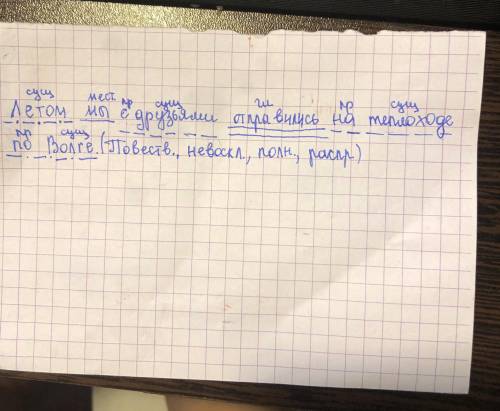 сущ мест. пр сущ гл пр сущ
Летом мы с друзьями отправились на теплоходе
пр сущ
по Волге. (Повеств., невоскл., полн., распр.)